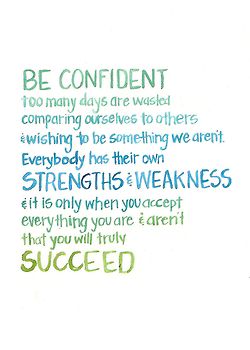 BE CONFIDENT
too many days are wasted
comparing ourselves to others
& wishing to be something we aren't.
Everybody has their own
STRENGTHS & WEAKNESS
& it is only when you accept
everything you are & aren't
that you will truly
SUCCEED